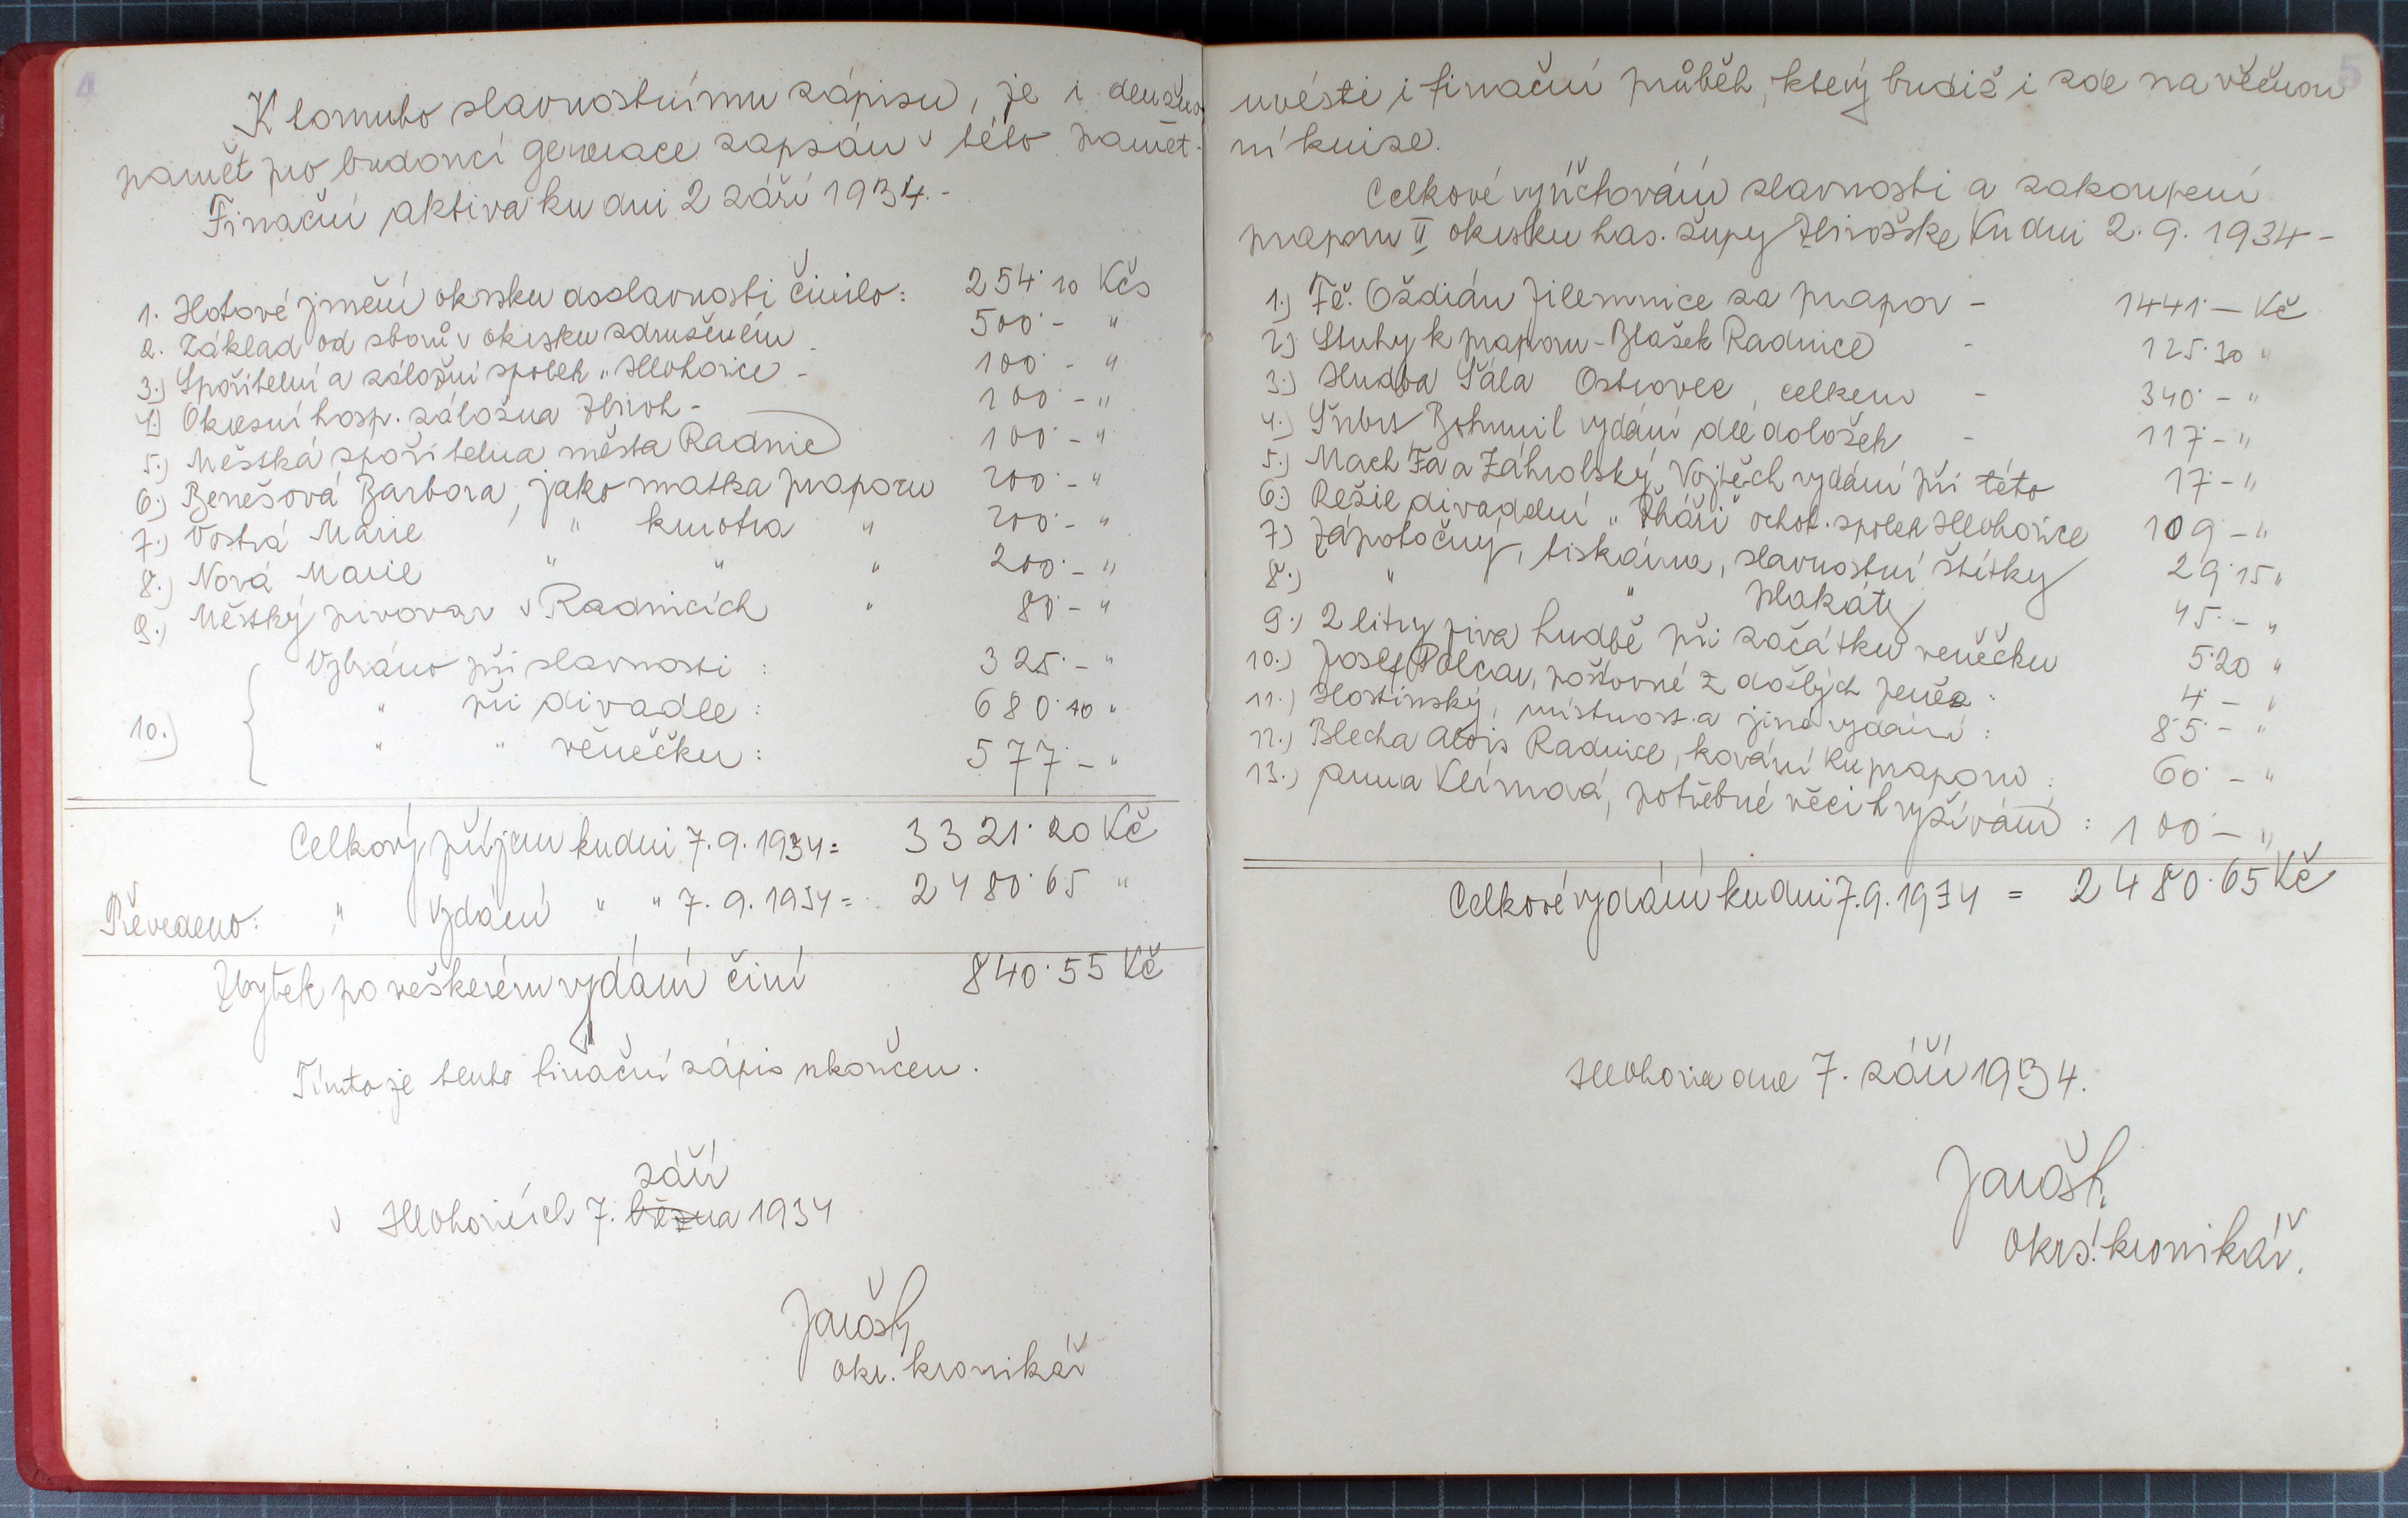 4
K tomuto slavnostnímu zápisu, je i
pamět pro budoucí generace zapsán v této pamět-
Finační aktiva ku dni 2 září 1934.-
1. Hotové jmění okrsku do slavnosti činilo: 254·10 Kčs
2. Základ od sborů v okrsku sdruženém - 500·- "
3.) Spořitelní a záložní spolek „Hlohovice - 100·- "
4.) Okresní hosp. záložna Zbiroh - 100·- "
5.) Městká spořitelna města Radnic 100·- "
6.) Benešová Barbora, jako matka praporu 200·- "
7.) Vostrá Marie " kmotra " 200·- "
8.) Nová Marie " " " 200·- "
9.) Městký pivovar v Radnicích " 80·- "
10.) Vybráno při slavnosti : 325·- "
" při divadle : 680·10 "
" " věnečku : 577·- "
Celkový příjem ku dni 7.9.1934 = 3321·20 Kč
Převedeno: " Vydání " " 7.9.1934 = 2480·65 "
Zbytek po veškerém vydání činí 840·55 Kč
Tímto je tento finační zápis ukončen.
září
v Hlohovicích 7. března 1934
Jarošh
okr. kronikář
5
uvésti i finační průběh, který budiž i zde na věčnou
ní knize.
Celkové vyúčtování slavnosti a zakoupení
praporu II okrsku has. župy Zbirožske Ku dni 2.9.1934-
1.) Fě. Oždián Jilemnice za prapor - 1441·- Kč
2.) Stuhy k praporu - Blažek Radnice - 125·30 "
3.) Hudba Šála Ostrovec, celkem - 340·- "
4.) Bohumil vydání dle doložek - 117·- "
5.) Mach Fa a Záhrobský Vojtěch vydání při této 17·- "
6.) Režie divadelní „Žháři" ochot. spolek Hlohovice 109·- "
7.) Zápotočný, tiskárna, slavnostní štítky 29·15 "
8.) " " plakáty 45·- "
9.) 2 litry piva hudbě při začátku věnečku 5·20 "
10.) Josef Polcar, poštovné z došlých peněz : 4·- "
11.) Hostinský, místnost a jiné vydání : 85·- "
12.) Blecha Alois Radnice, kování ku praporu : 60·- "
13.) Anna Klímová, potřebné věci k vyšívání : 100·- "
Celkové vydání ku dni 7.9.1934 = 2480·65 Kč
Hlohovice dne 7. září 1934.
Jarošh.
okrs. kronikář.